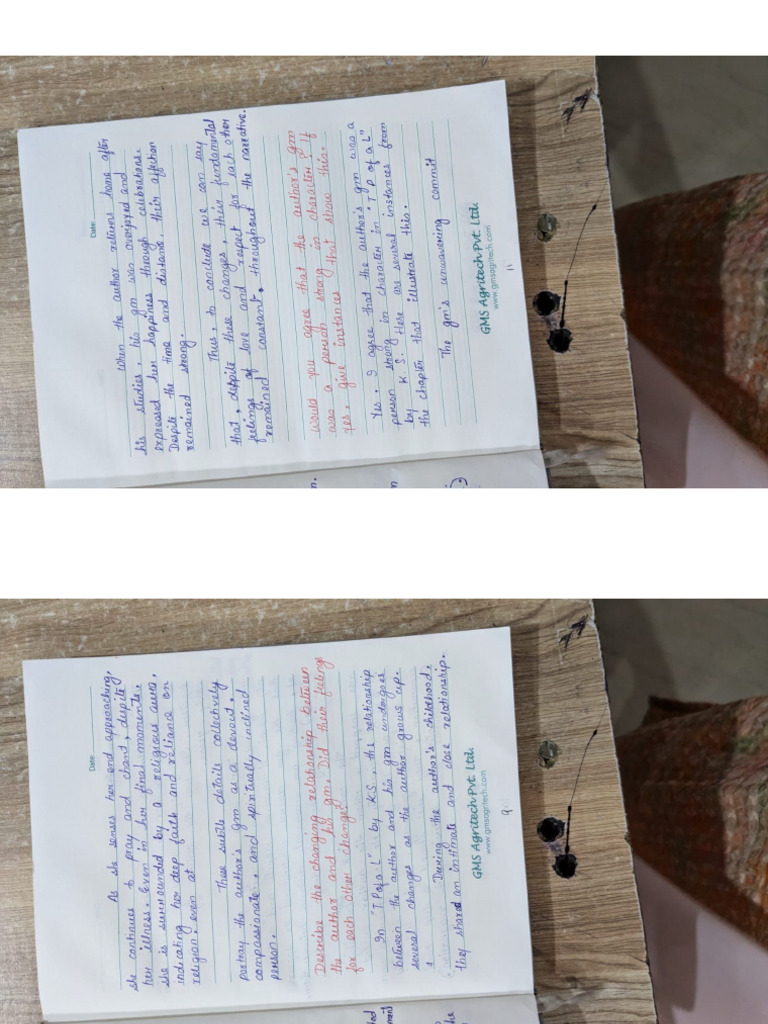 Date:
As she senses her end approaching,
she continues to pray and chand, despite
her illness. Even in her final moments,
she is surrounded by a religious aura,
indicating her deep faith and reliance on
religion; even at
These subtle details collectively
portray the author's gm as a devout,
compassionate, and spiritually inclined
person.
Describe the changing relationship between
the author and his gm. Did their feelings
for each other change?
In "TPofal" by K.S, the relationship
between the author and his gm undergoes
several changes as the author grows up.
During the author's childhood,
they shared an intimate and close relationship.
GMS Agritech Pvt. Ltd.
www.gmsagritech.com
9
Date:
When the author returns home after
his studies, his gm was overjoyed and
expressed her happiness through celebrations.
Despite the time and distance, their affection
remained strong.
Thus, to conclude we can say
that, despite these changes, their fundamental
feelings of love and respect for each other
remained constant, throughout the narrative.
Would you agree that the author's gm
was a person strong in character? If
yes, give instances that show this.
Yes, I agree that the author's gm was a
person strong in character in "TP of a L"
by K.S. Here are several instances from
the chapter that illustrate this.
The gm's unwavering commit
GMS Agritech Pvt. Ltd.
www.gmsagritech.com
11